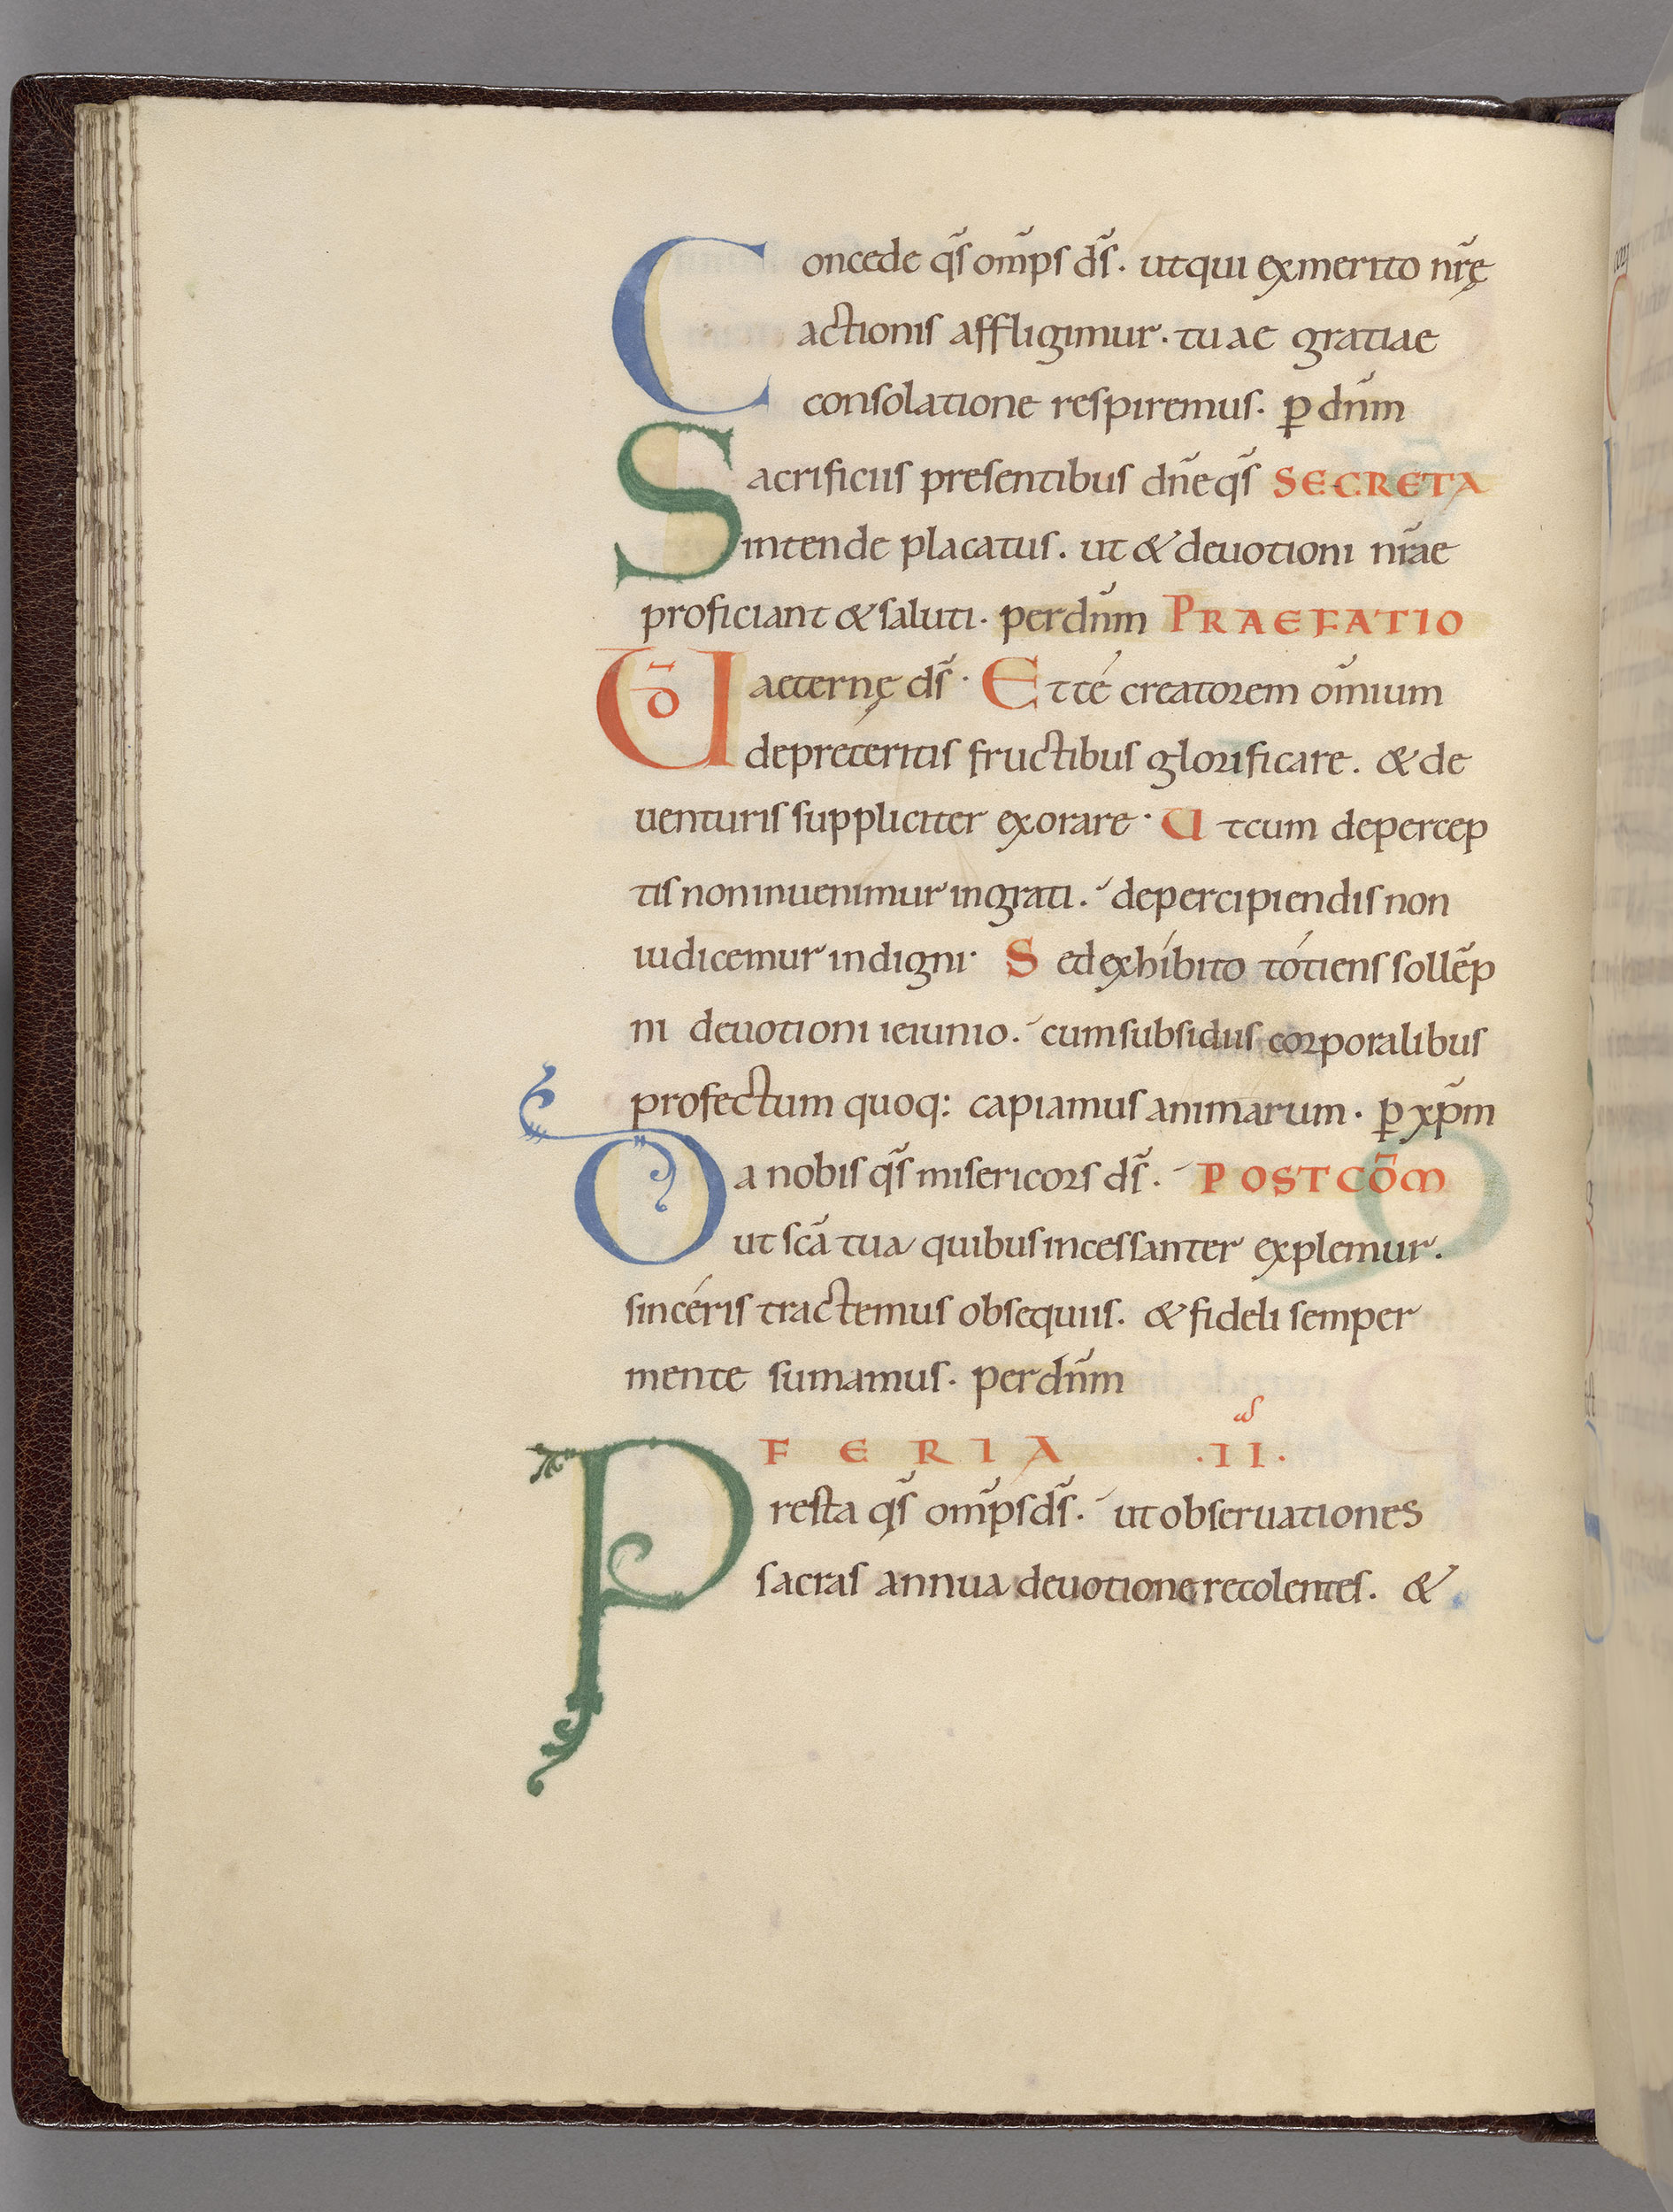 Concede qs̄ om̄ps ds̄. ut qui ex merito nr̄ę
actionis affligimur. tuae gratiae
consolatione respiremus. ꝑ dn̄m
Sacrificiis presentibus dn̄e qs̄ SECRETA
intende placatus. ut & deuotioni nr̄ae
proficiant & saluti. per dn̄m PRAEFATIO
UD̄ aeternę ds̄. Et té creatorem om̄ium
de preteritis fructibus glorificare. & de
uenturis suppliciter exorare. Ut cum de percep
tis non inuenimur ingrati. de percipiendis non
iudicemur indigni. Sed exhíbito tótiens sollēp
ni deuotioni ieiunio. cum subsidiis corporalibus
profectum quoq: capiamus animarum. ꝑ xp̄m
Da nobis qs̄ misericors ds̄. POST COM̄
ut scā tua quibus incessanter explemur.
sincéris tractemus obsequiis. & fideli semper
mente sumamus. per dn̄m
FERIA .II.as
Presta qs̄ om̄ps ds̄. ut obseruationes
sacras annua deuotione recolentes. &